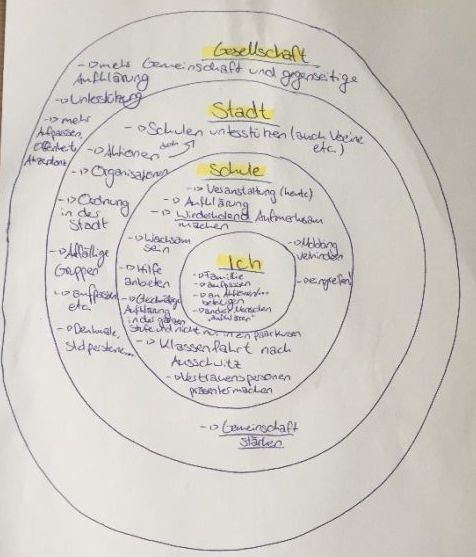 Gesellschaft
-> mehr Gemeinschaft und gegenseitige
Aufklärung
-> Unterstützung
-> mehr
Aufpassen,
Offenheit,
Akzeptanz
Stadt
-> Schulen unterstützen (auch Vereine
etc.)
-> Aktionen
-> Organisationen
-> Ordnung
in der
Stadt
-> Auffällige
Gruppen
-> aufpassen
etc.
-> Denkmale,
Stolpersteine...
-> Gemeinschaft
stärken
Schule
-> Veranstaltung (heute)
-> Aufklärung
-> Wiederholend Aufmerksam
machen
-> Wachsam
sein
-> Hilfe
anbieten
Aufklärung
in der ganzen
Stufe und nicht nur in ein paar Kursen
-> Klassenfahrt nach
Ausschwitz
-> Vertrauenspersonen
präsenter machen
-> Mobbing
verhindern
-> eingreifen!
Ich
-> Familie
-> aufpassen
-> an Aktionen...
beteiligen
-> andere Menschen
"aufklären"